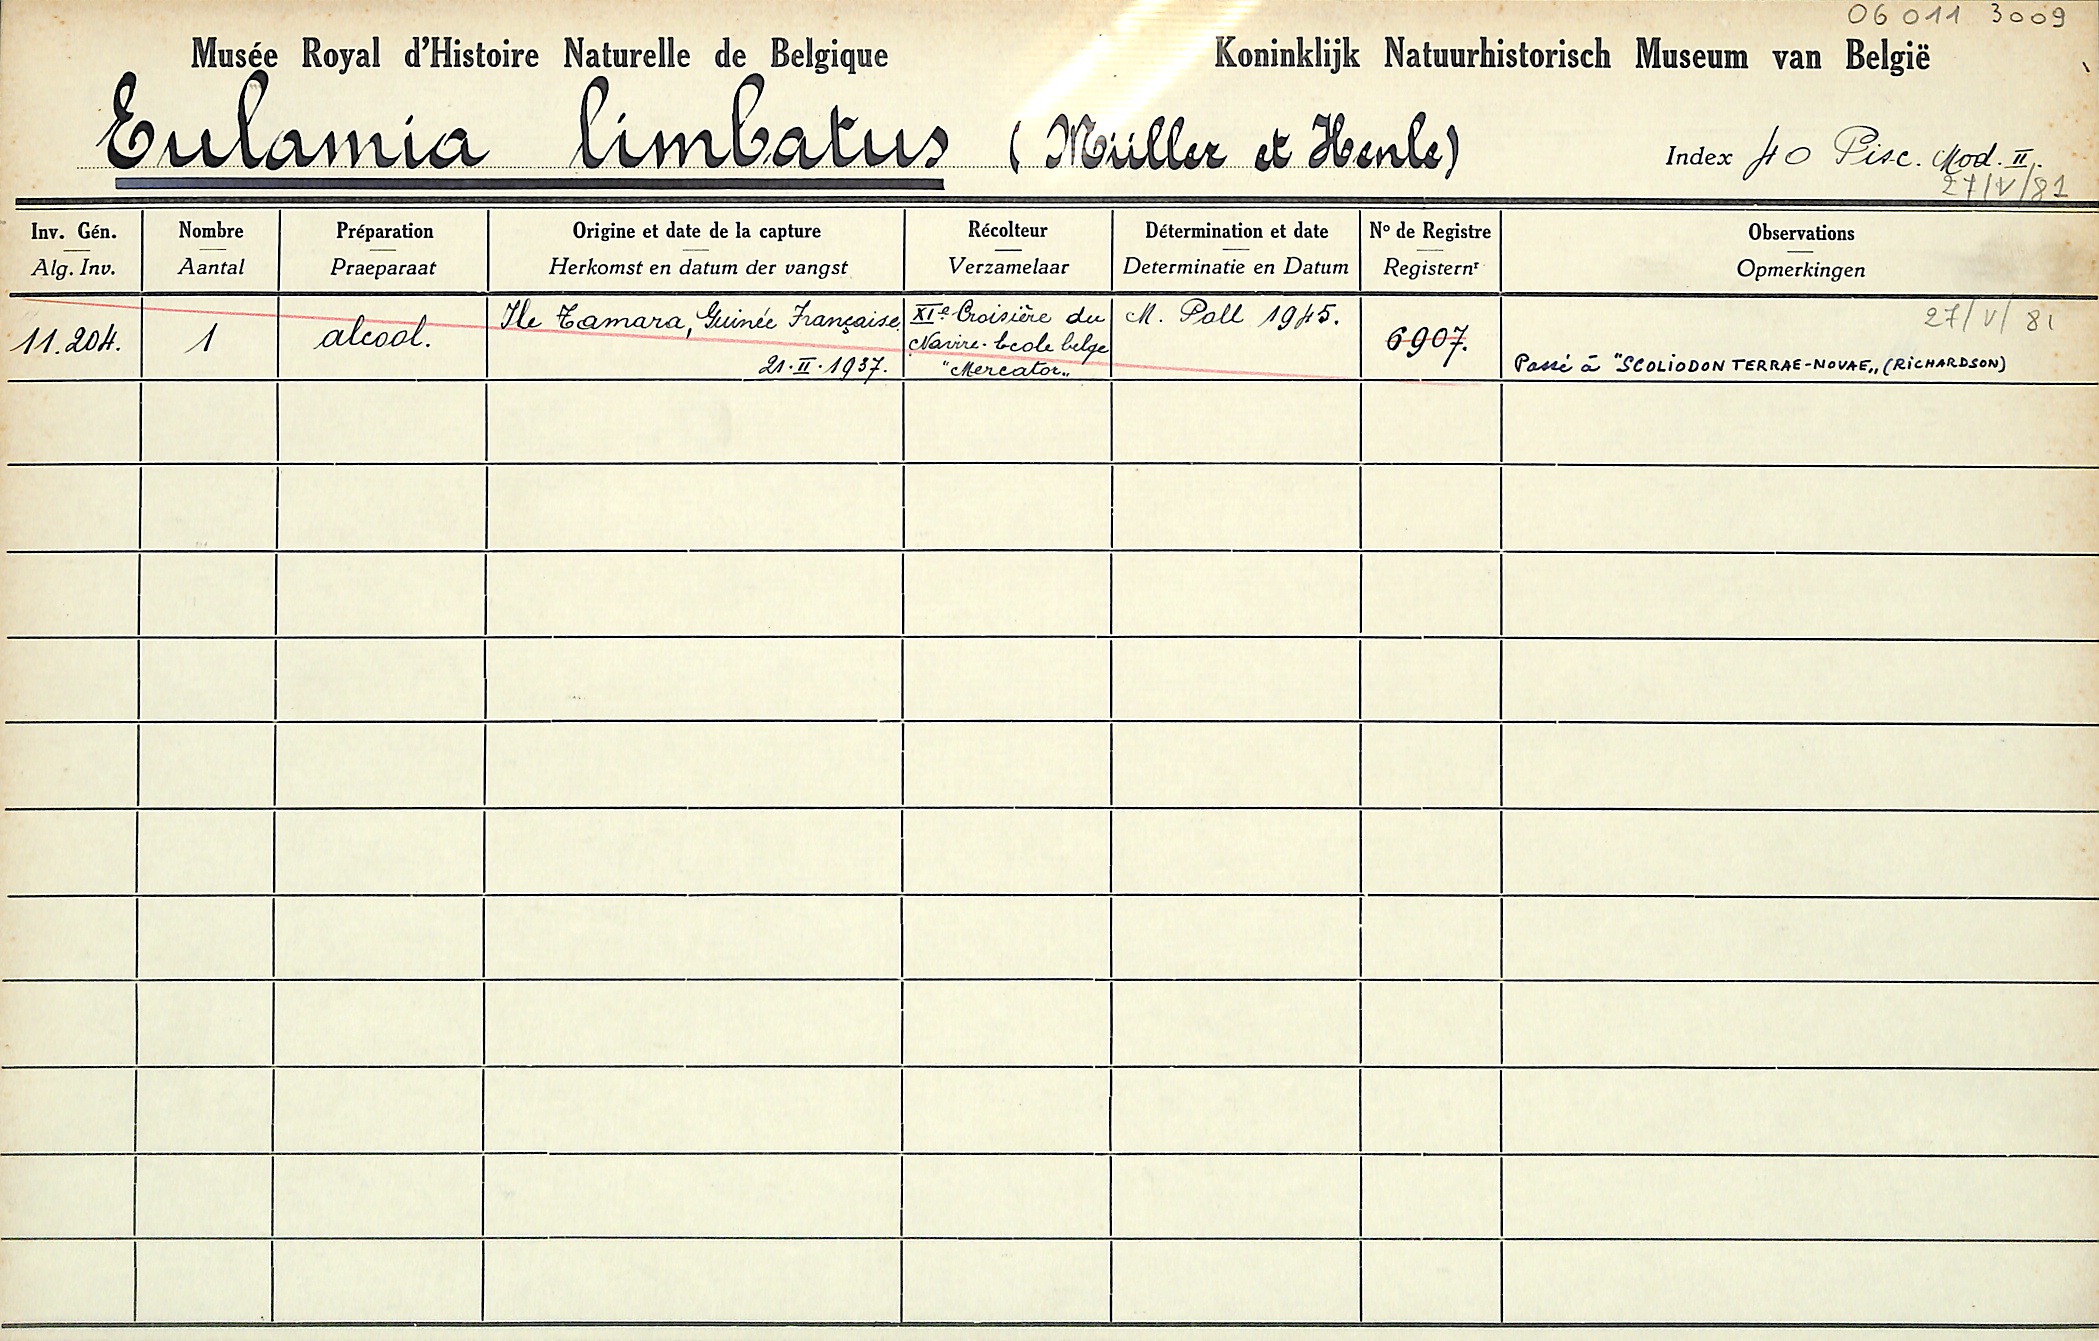 06 011 3009
Musée Royal d'Histoire Naturelle de Belgique
Koninklijk Natuurhistorisch Museum van België
Eulamia limbatus (Müller et Henle)
Index 40 Pisc. Mod. II.
27/V/81
Inv. Gén.
Alg. Inv.
Nombre
Aantal
Préparation
Praeparaat
Origine et date de la capture
Herkomst en datum der vangst
Récolteur
Verzamelaar
Détermination et date
Determinatie en Datum
No de Registre
Registernr
Observations
Opmerkingen
11.204.
1
alcool.
Ile Tamara, Guinée Française,
21.II.1937.
XIe Croisière du
Navire-Ecole belge
"Mercator„
M. Poll 1945.
6907.
27/V/81
Passé à "SCOLIODON TERRAE-NOVAE„ (RICHARDSON)